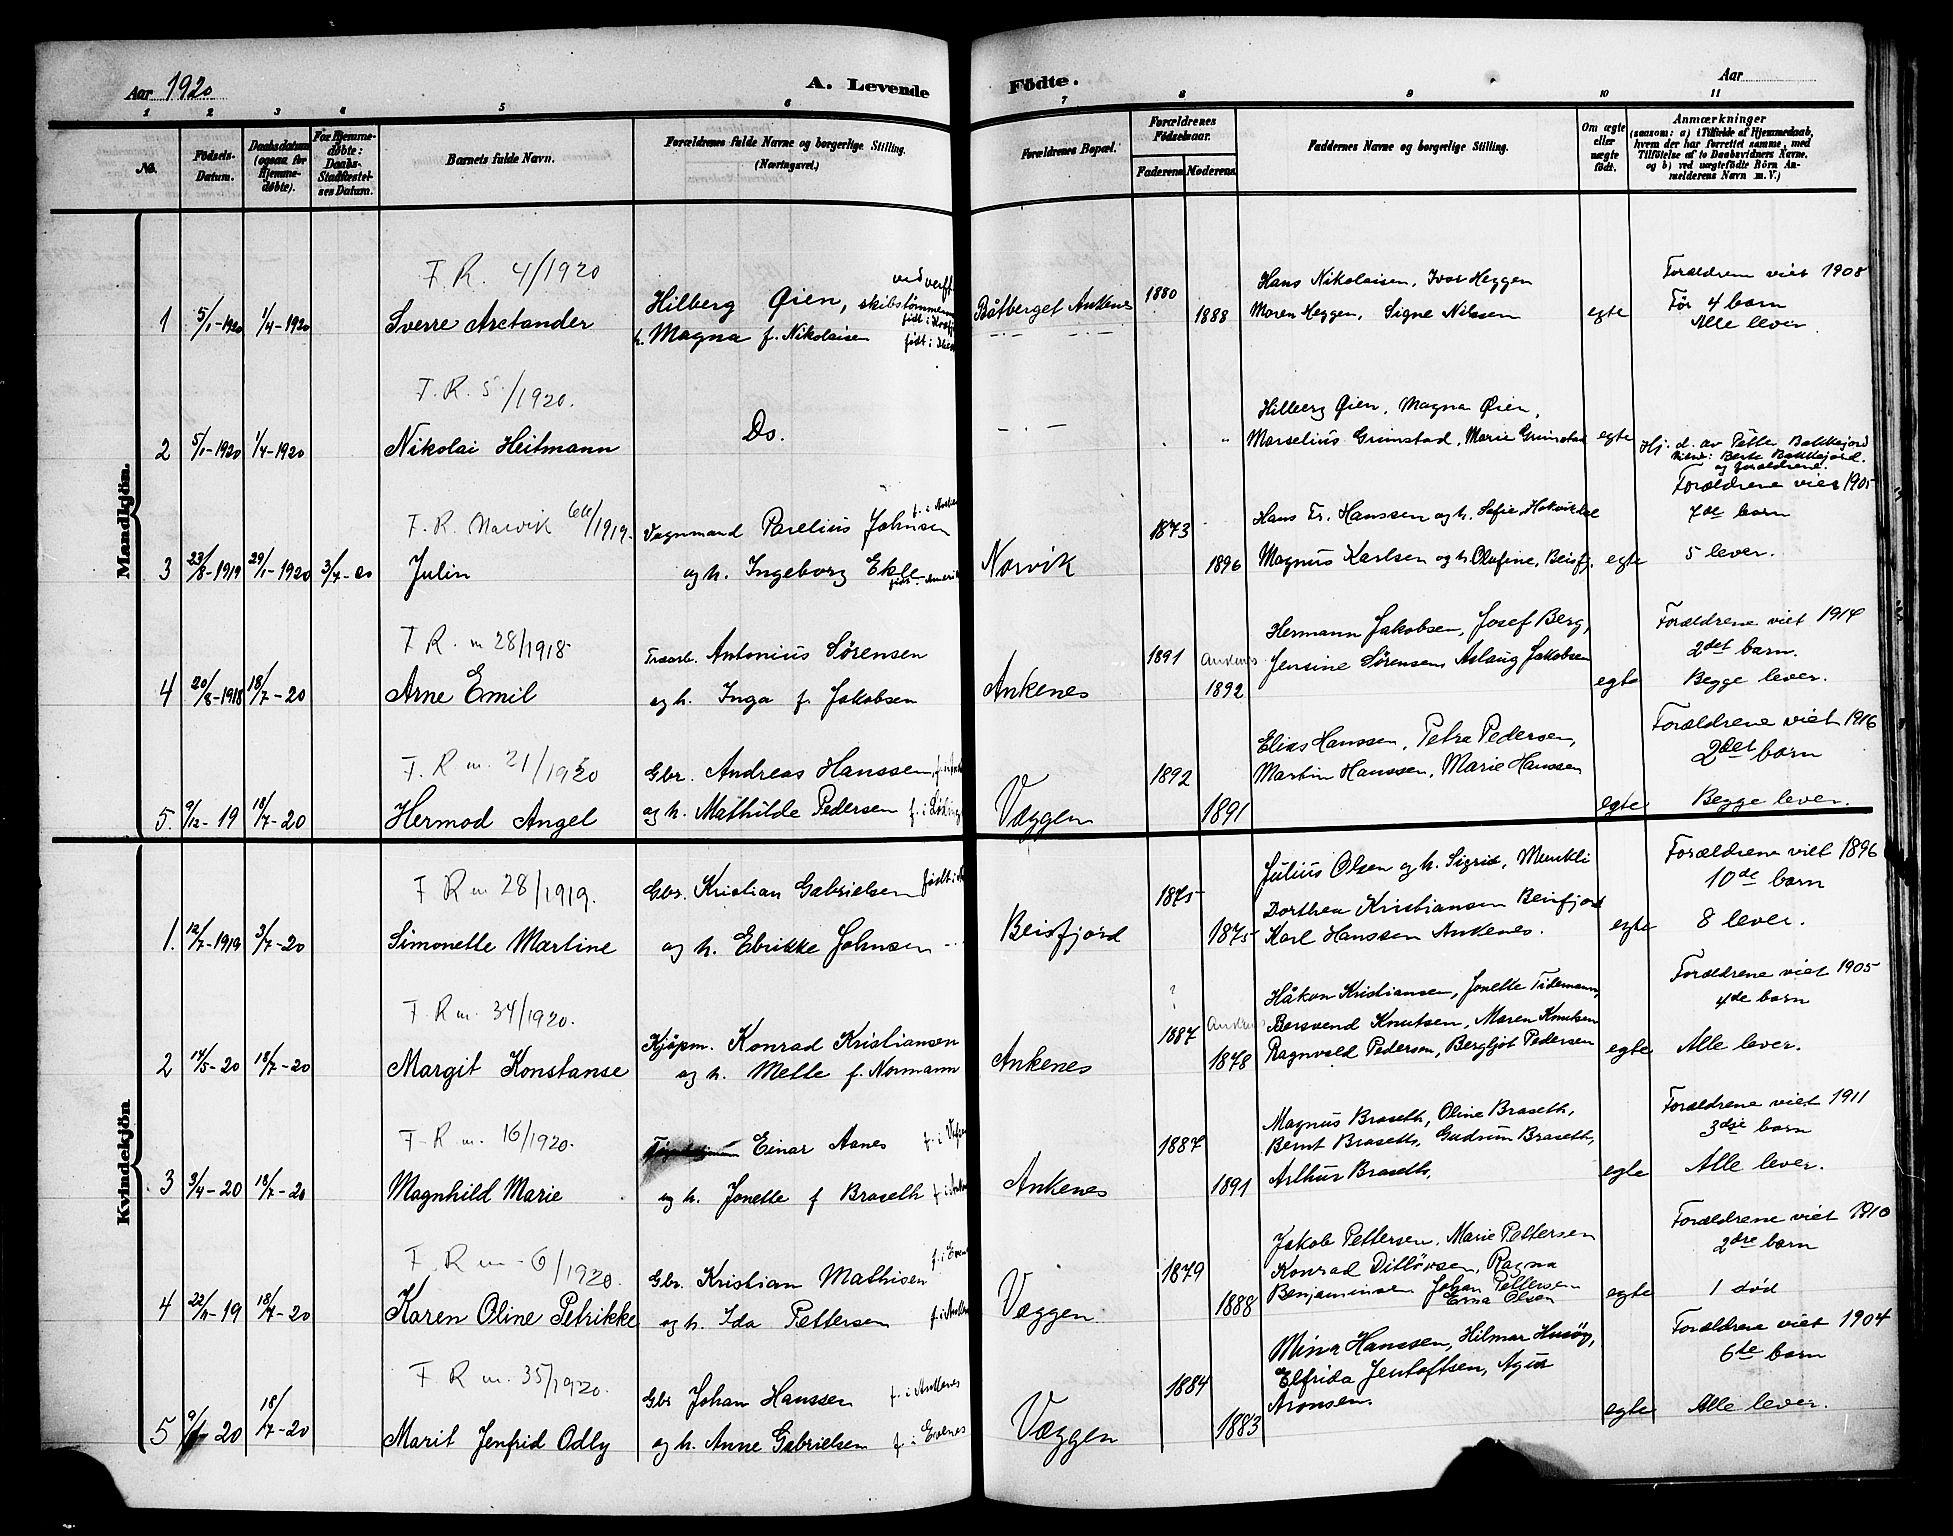 Aar 1920
A. Levende
Fødte.
Aar
1 2 3 4 5 6 7 8 9 10 11
No.
Fødsels-Datum.
Daabsdatum (ogsaa for Hjemme-døbte).
For Hjemme-døbte: Daabs-Stadfæstel-ses Datum.
Barnets fulde Navn.
Forældrenes fulde Navne og borgerlige Stilling. (Næringsvei.)
Forældrenes Bopæl.
Forældrenes Fødselsaar.
Faderens
Moderens
Faddernes Navne og borgerlige Stilling.
Om ægte eller uægte født.
Anmærkninger
(saasom: a) i Tilfælde af Hjemmedaab,
hvem der har forrettet samme, med
Tilføielse af to Daabsvidners Navne,
og b) ved uægtefødte Børn An-
melderens Navn m. V.)
Mandkjön.
F. R. 4/1920
1 5/1-1920 1/4-1920 Sverre Arctander
Hilberg Øien, skibstømmerm ved verft
h. Magna f. Nikolaisen
Båtberget Ankenes
1880 1888
Hans Nikolaisen, Ivar Heggen
Maren Heggen, Signe Nilssen
egte
Forældrene viet 1908
Før 4 barn
Alle lever.
F. R. 5/1920.
2 5/1-1920 1/4-1920 Nikolai Heitmann
Do.
Hilberg Øien, Magna Øien,
Marselius Grimstad, Marie Grimstad
egte
Hj. d. av Petter Bakkejord
Bakkejord.
og forældrene.
F. R. Narvik 64/1919.
3 23/8-1919 29/1-1920 3/4-20 Julin
Vognmand Parelius Johnsen
og h. Ingeborg Ekle
Narvik
1873 1896
Hans Fr. Hanssen og h. Sofie, Håkvikdal
Magnus Karlsen og h. Olufine, Beisfj.
egte
Forældrene viet 1905
7de barn
5 lever.
F. R. m 28/1918
4 20/8-1918 18/7-20 Arne Emil
Traarb. Antonius Sørensen
og h. Inga f. Jakobsen
Ankenes
1891 Ankenes 1892
Hermann Jakobsen, Josef Berg,
Jensine Sørensen, Aslaug Jakobsen
egte
Forældrene viet 1914
2det barn.
Begge lever.
F. R m. 21/1920
5. 9/12-19 18/7-20 Hermod Angel
Gbr. Andreas Hanssen,
og h. Mathilde Pedersen
Væggen
1892 1891
Elias Hanssen, Petra Pedersen,
Martin Hanssen, Marie Hanssen
egte
Forældrene viet 1916
2det barn
Begge lever.
Kvindekjön
F R m 28/1919.
1. 12/7-1919 3/7-20 Simonette Martine
Gbr. Kristian Gabrielsen
og h. Ebrikke Johnsen
Beisfjord
1875 1875
Julius Olsen og h. Sigrid, Munkli
Dorthea Kristiansen Beisfjord
Karl Hanssen Ankenes.
egte
Forældrene viet 1896
10de barn
8 lever.
F. R m. 34/1920.
2 14/5-20 18/7-20 Margit Konstanse
Kjøpm. Konrad Kristiansen
og h. Mette f. Normann
Ankenes
? 1887 Ankenes 1878
Håkon Kristiansen, Jonette Tidemann,
Barsvend Knutsen, Maren Knutsen
Ragnvald Pedersen, Bergljot Pedersen
egte
Forældrene viet 1905
4de barn
Alle lever.
F. R m. 16/1920.
3 3/4-20 18/7-20 Magnhild Marie
Einar Aanes
og h. Jonette f Braseth
Ankenes
1887 1891
Magnus Braseth, Oline Braseth,
Bernt Braseth, Gudrun Braseth,
Arthur Braseth,
egte
Forældrene viet 1911
3dje barn
Alle lever.
F. R m 6/1920.
4 22/11-19 18/7-20 Karen Oline Petrikke
Gbr. Kristian Mathisen
og h. Ida Pettersen
Væggen.
1879 1888
Jakob Pettersen, Marie Pettersen
Konrad Ditløvsen, Ragna
Benjaminsen Johan Pettersen
Erna Olsen
egte
Forældrene viet 1910
2dre barn
1 død
F. R m. 35/1920.
5 20 18/7-20 Marit Jenfrid Odly
Gbr Johan Hanssen f. i Ankenes
og h. Anne Gabrielsen f. i Evenes
Væggen
1884 1883
Mina Hanssen, Hilmar Husøy,
Elfrida Jentoftsen,
Aronsen.
egte
Forældrene viet 1904
6te barn
Alle lever.